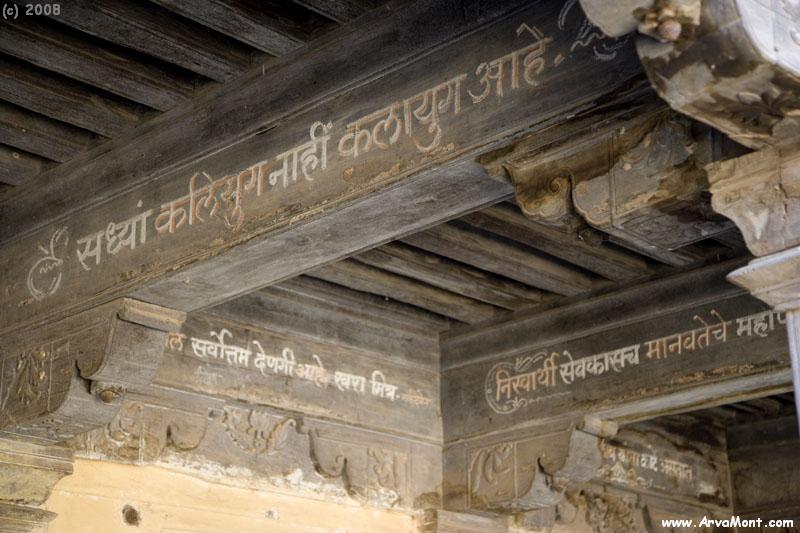 (c) 2008
सध्यां कलियुग नाहीं कलायुग आहे.
सर्वोत्तम देणगी आहे. खरा मित्र.
निस्वार्थी सेवकासच मानवतेचे
www.ArvaMont.com